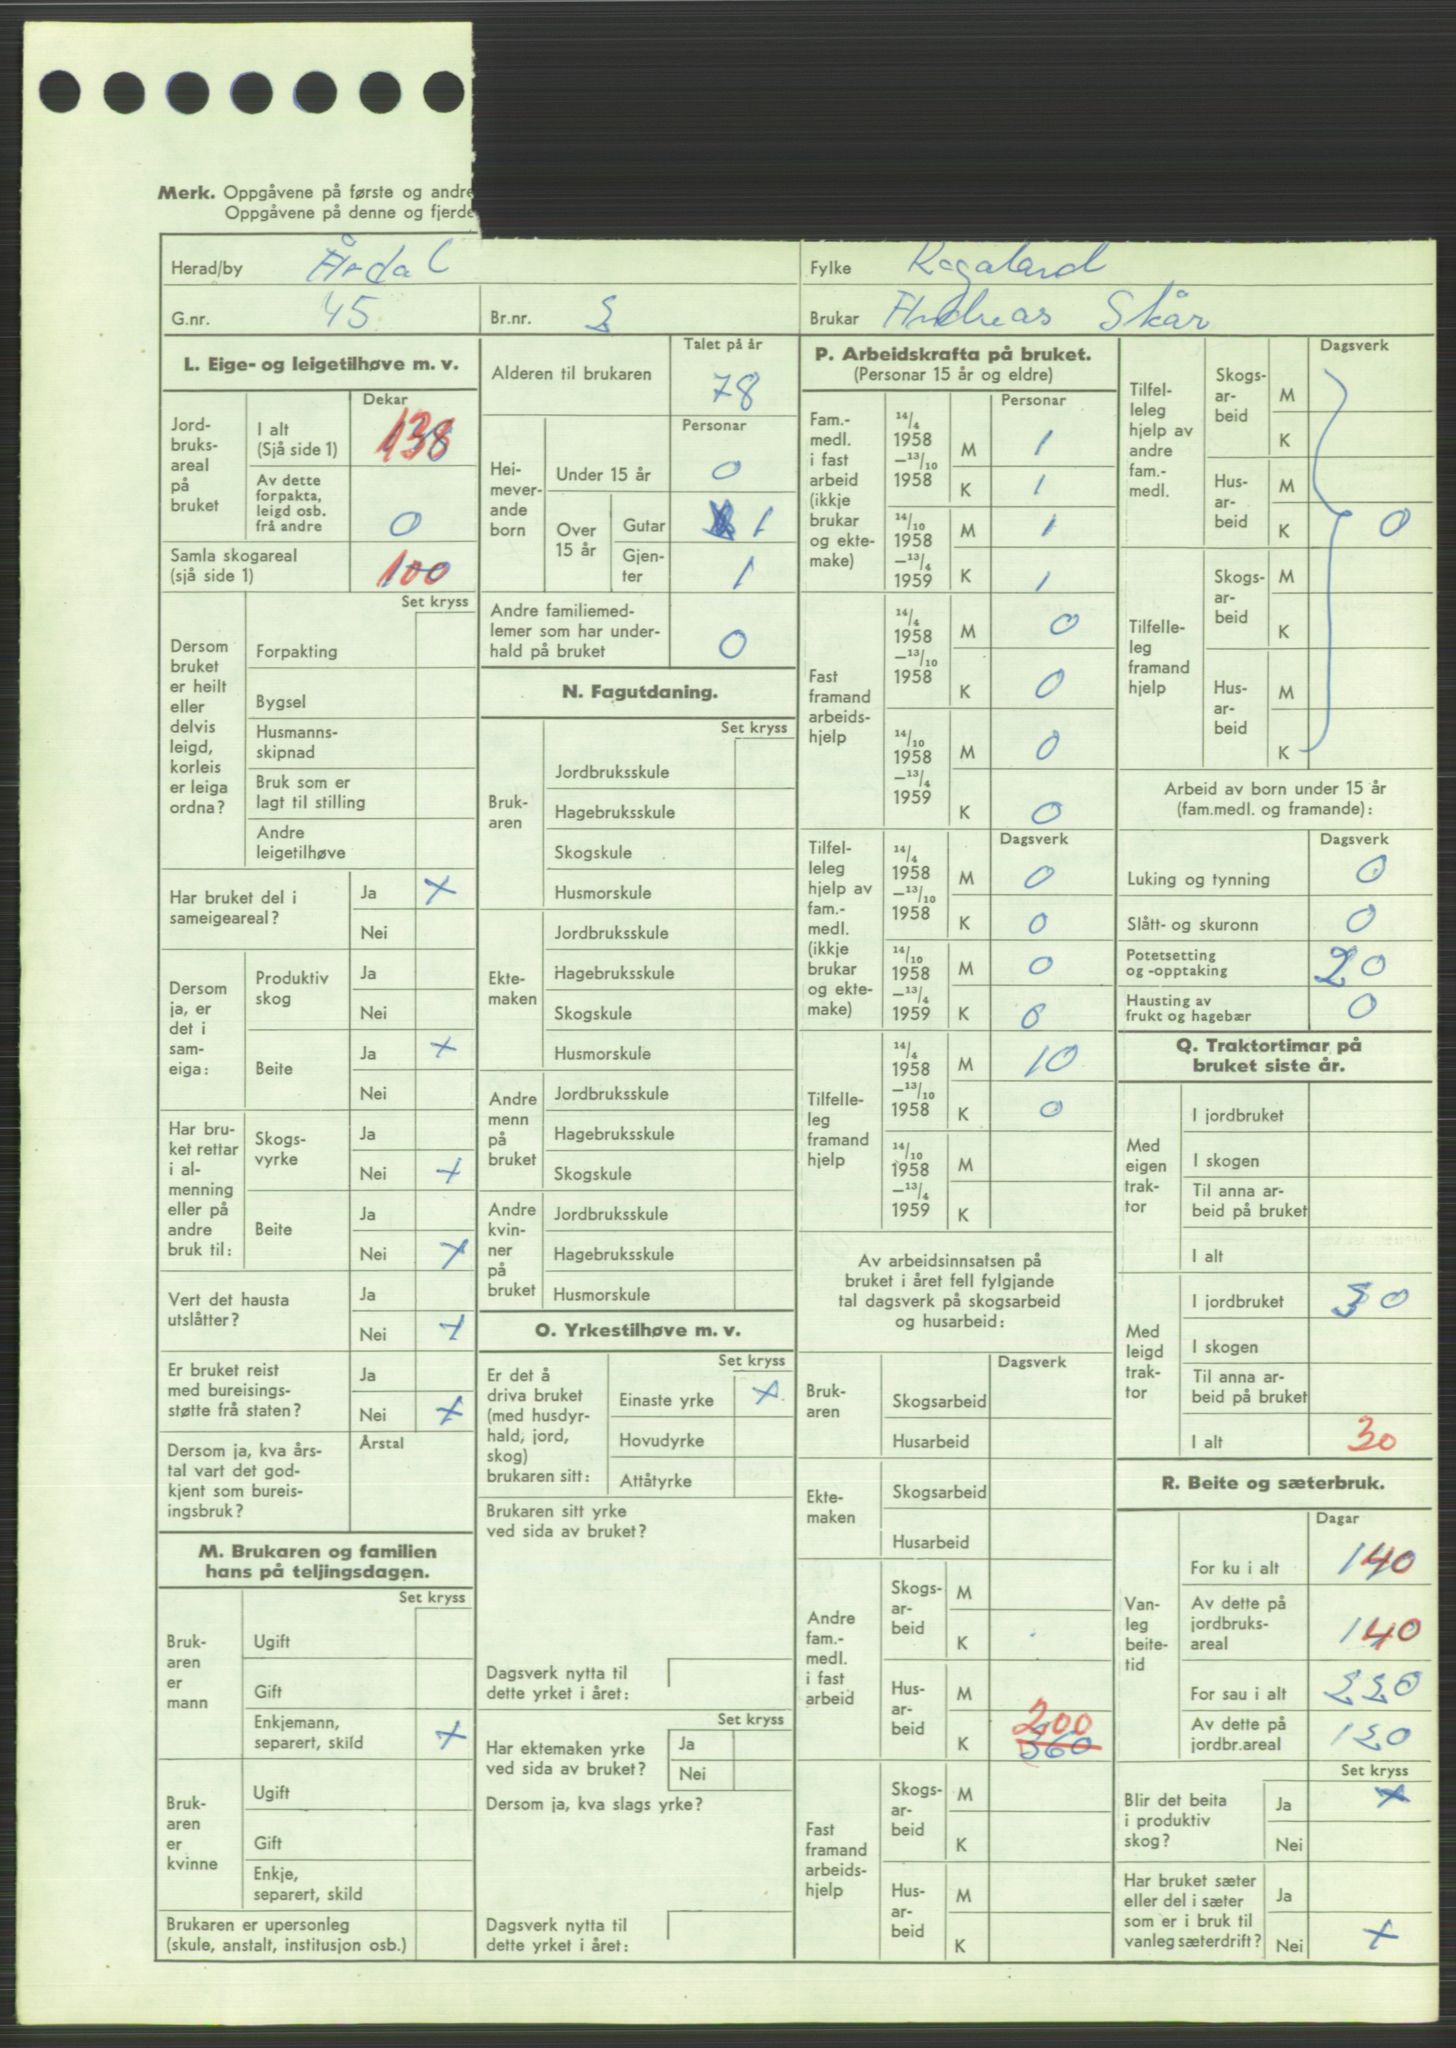 Merk. Oppgåvene på første og andre
Oppgåvene på denne og fjerde
Herad/by Årdal
Fylke Rogaland
G.nr. 45
Br.nr. 2
Brukar Andreas Skår
L. Eige- og leigetilhøve m. v.
Dekar
Jord-
bruks-
areal
på
bruket
I alt
(Sjå side 1) 138
Av dette
forpakta,
leigd osb.
frå andre 0
Samla skogareal
(sjå side 1) 100
Set kryss
Dersom
bruket
er heilt
eller
delvis
leigd,
korleis
er leiga
ordna?
Forpakting
Bygsel
Husmanns-
skipnad
Bruk som er
lagt til stilling
Andre
leigetilhøve
Har bruket del i
sameigeareal?
Ja +
Nei
Dersom
ja, er
det i
sam-
eiga:
Produktiv
skog
Ja
Nei
Beite
Ja +
Nei
Har bru-
ket rettar
i al-
menning
eller på
andre
bruk til:
Skogs-
vyrke
Ja
Nei +
Beite
Ja
Nei +
Vert det hausta
utslåtter?
Ja
Nei +
Er bruket reist
med bureisings-
støtte frå staten?
Ja
Nei +
Dersom ja, kva års-
tal vart det god-
kjent som bureis-
ingsbruk?
Årstal
M. Brukaren og familien
hans på teljingsdagen.
Set kryss
Bruk-
aren
er
mann
Ugift
Gift
Enkjemann,
separert, skild +
Bruk-
aren
er
kvinne
Ugift
Gift
Enkje,
separert, skild
Brukaren er upersonleg
(skule, anstalt, institusjon osb.)
Talet på år
Alderen til brukaren 78
Personar
Hei-
mever-
ande
born
Under 15 år 0
Over
15 år
Gutar 1
Gjen-
ter 1
Andre familiemed-
lemer som har under-
hald på bruket 0
N. Fagutdaning.
Set kryss
Bruk-
aren
Jordbruksskule
Hagebruksskule
Skogskule
Husmorskule
Ekte-
maken
Jordbruksskule
Hagebruksskule
Skogskule
Husmorskule
Andre
menn
på
bruket
Jordbruksskule
Hagebruksskule
Skogskule
Andre
kvin-
ner
på
bruket
Jordbruksskule
Hagebruksskule
Husmorskule
O. Yrkestilhøve m. v.
Set kryss
Er det å
driva bruket
(med husdyr-
hald, jord,
skog)
brukaren sitt:
Einaste yrke +
Hovudyrke
Attåtyrke
Brukaren sitt yrke
ved sida av bruket?
Dagsverk nytta til
dette yrket i året:
Set kryss
Har ektemaken yrke
ved sida av bruket?
Ja
Nei
Dersom ja, kva slags yrke?
Dagsverk nytta til
dette yrket i året:
P. Arbeidskrafta på bruket.
(Personar 15 år og eldre)
Personar
Fam.-
medl.
i fast
arbeid
(ikkje
brukar
og ekte-
make)
14/4
1958
—13/10
1958
M 1
K 1
14/10
1958
—13/4
1959
M 1
K 1
Fast
framand
arbeids-
hjelp
14/4
1958
—13/10
1958
M 0
K 0
14/10
1958
—13/4
1959
M 0
K 0
Dagsverk
Tilfel-
leleg
hjelp av
fam.-
medl.
(ikkje
brukar
og ekte-
make)
14/4
1958
—13/10
1958
M 0
K 0
14/10
1958
—13/4
1959
M 0
K 0
Tilfelle-
leg
framand
hjelp
14/4
1958
—13/10
1958
M 10
K 0
14/10
1958
—13/4
1959
M
K
Av arbeidsinnsatsen på
bruket i året fell fylgjande
tal dagsverk på skogsarbeid
og husarbeid:
Dagsverk
Bruk-
aren
Skogsarbeid
Husarbeid
Ekte-
maken
Skogsarbeid
Husarbeid
Andre
fam.-
medl.
i fast
arbeid
Skogs-
ar-
beid
M
K
Hus-
ar-
beid
M
200
K 360
Fast
framand
arbeids-
hjelp
Skogs-
ar-
beid
M
K
Hus-
ar-
beid
M
K
Dagsverk
Tilfel-
leleg
hjelp av
andre
fam.-
medl.
Skogs-
ar-
beid
M
K
Hus-
ar-
beid
M
K 0
Tilfelle-
leg
framand
hjelp
Skogs-
ar-
beid
M
K
Hus-
ar-
beid
M
K
Arbeid av born under 15 år
(fam.medl. og framande):
Dagsverk
Luking og tynning 0
Slått- og skuronn 0
Potetsetting
og -opptaking 20
Hausting av
frukt og hagebær 0
Q. Traktortimar på
bruket siste år.
Med
eigen
trak-
tor
I jordbruket
I skogen
Til anna ar-
beid på bruket
I alt
Med
leigd
trak-
tor
I jordbruket 30
I skogen
Til anna ar-
beid på bruket
I alt 30
R. Beite og sæterbruk.
Dagar
Van-
leg
beite-
tid
For ku i alt 140
Av dette på
jordbruks-
areal 140
For sau i alt 220
Av dette på
jordbr.areal 120
Set kryss
Blir det beita
i produktiv
skog?
Ja +
Nei
Har bruket sæter
eller del i sæter
som er i bruk til
vanleg sæterdrift?
Ja
Nei +